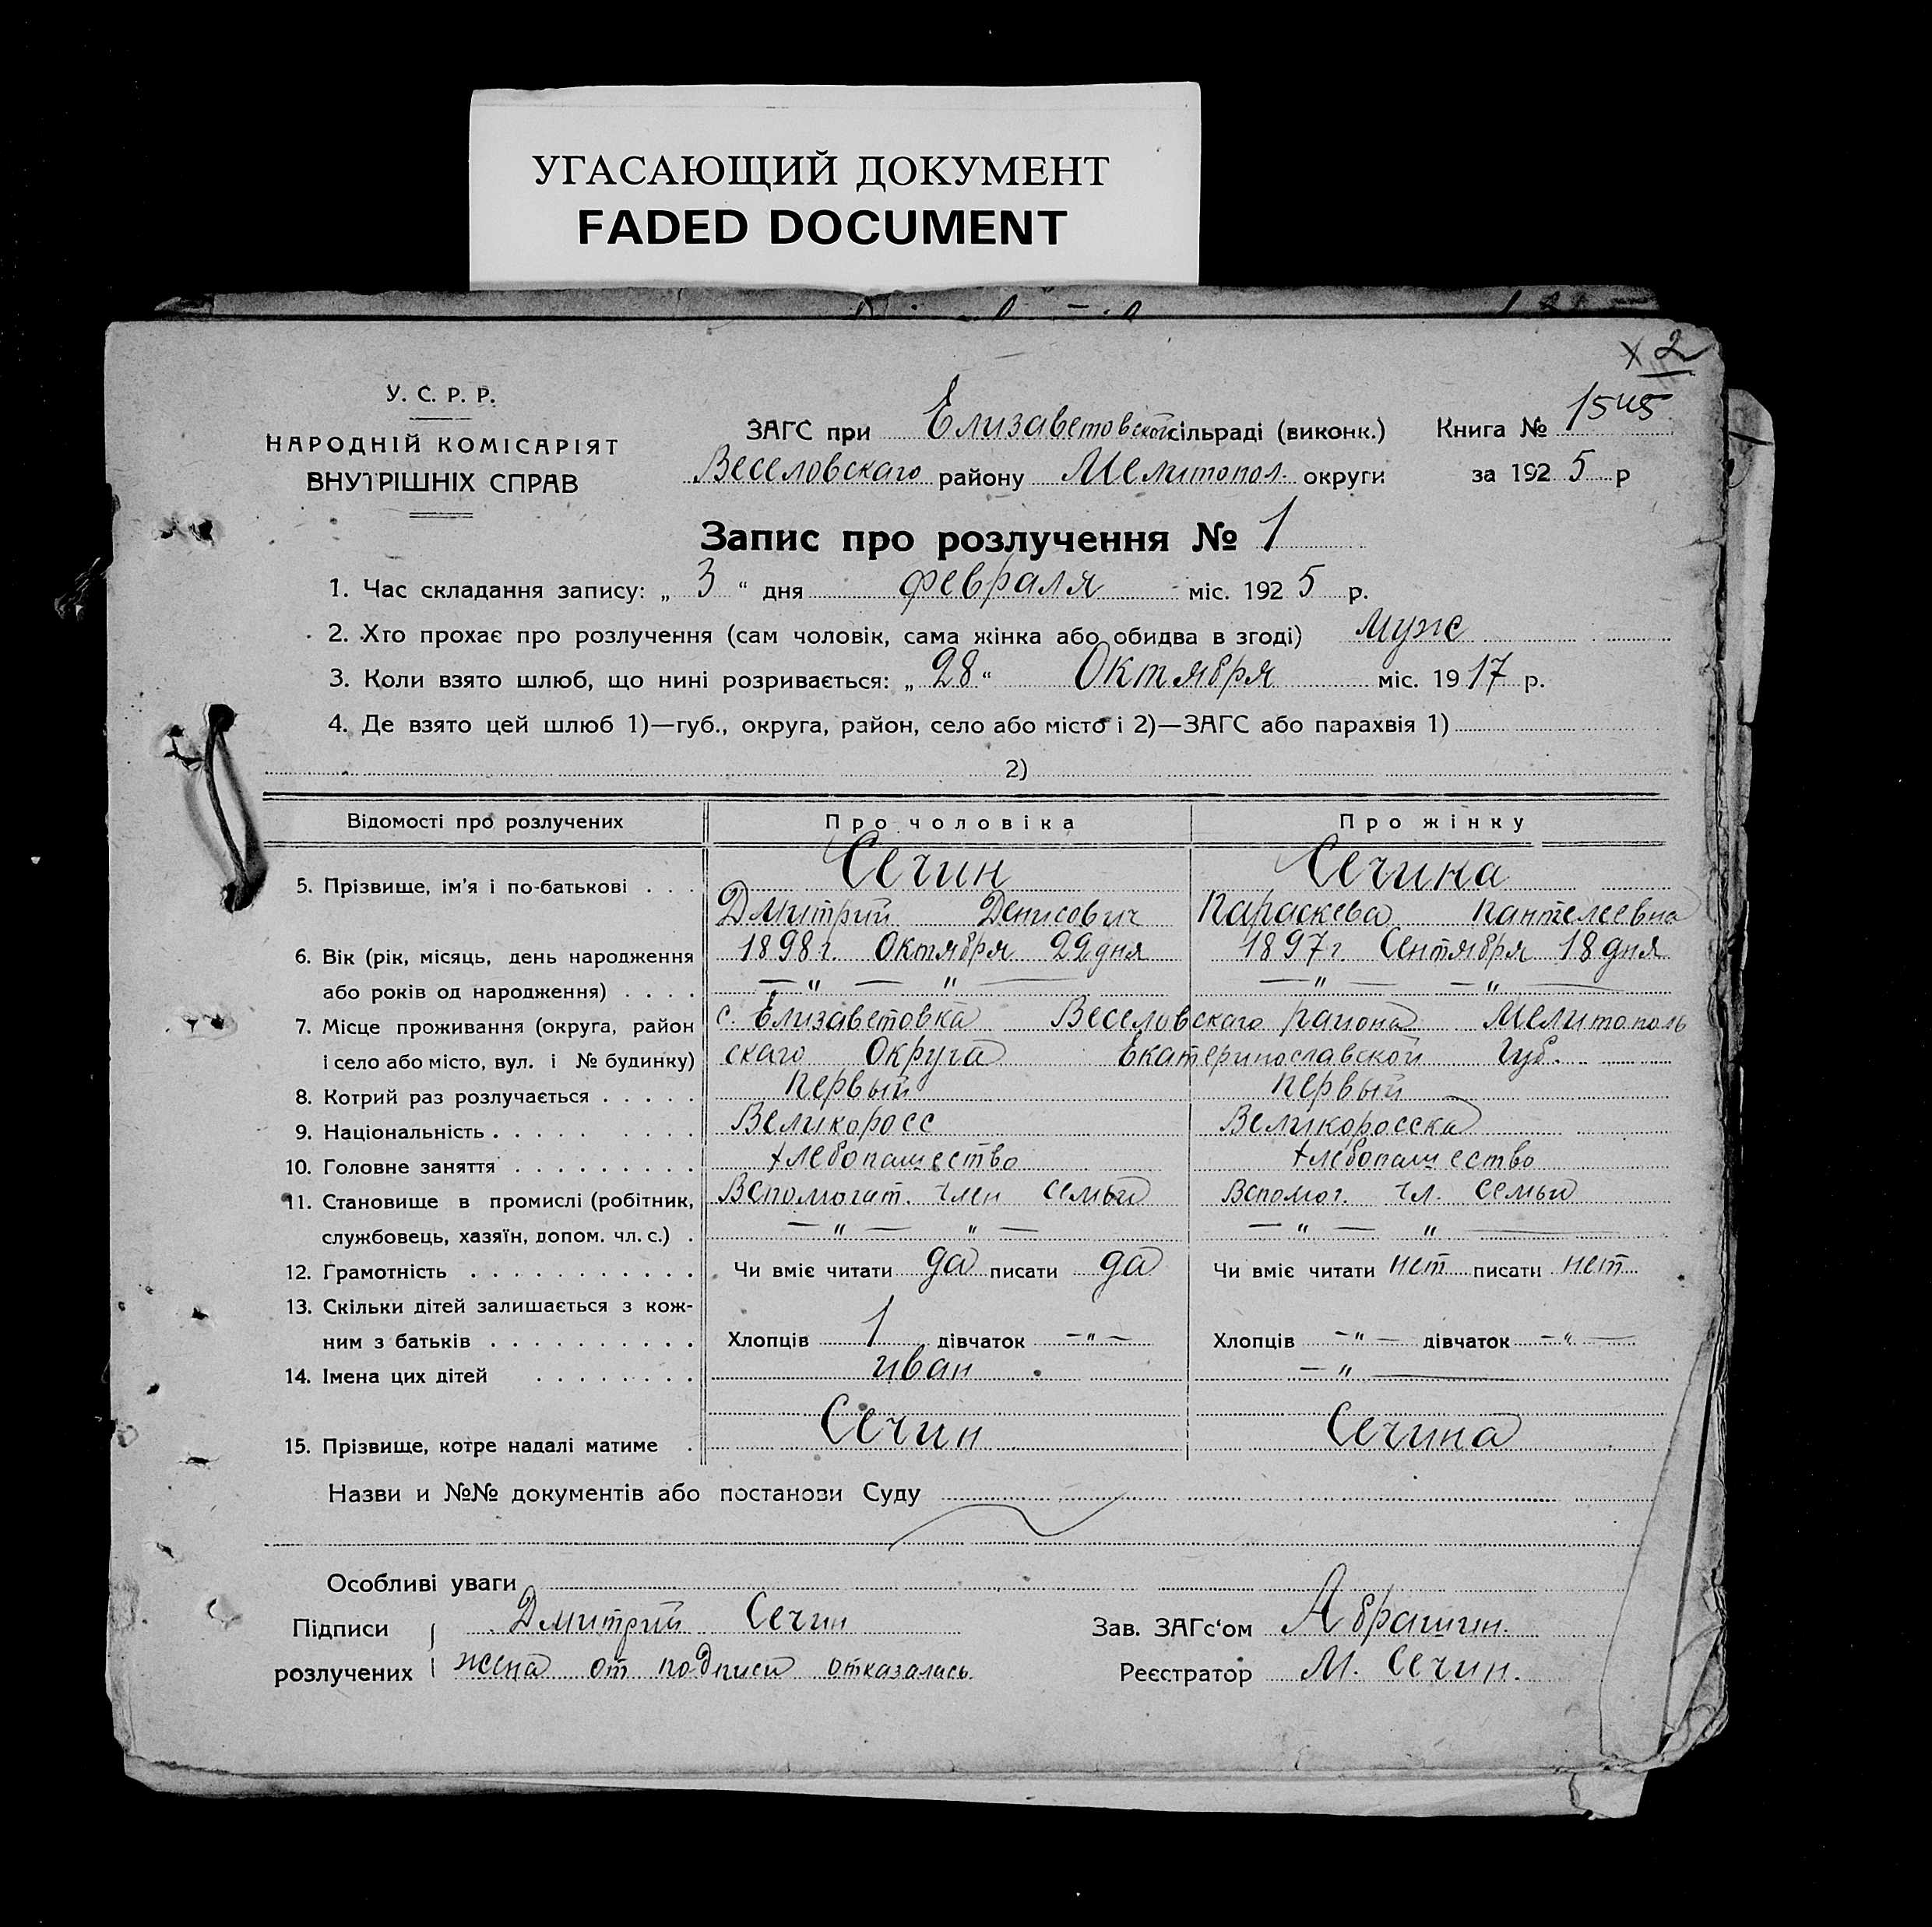 УГАСАЮЩИЙ ДОКУМЕНТ
FADED DOCUMENT
х 2
У. С. Р. Р.
НАРОДНІЙ КОМІСАРІЯТ
ВНУТРІШНІХ СПРАВ
ЗАГС при Елизаветовской сільраді (виконк.) Книга № 1545
Веселовскаго району Мелитопол. округи за 1925 р
Запис про розлучення № 1
1. Час складання запису: „ 3 “ дня февраля міс. 1925 р.
2. Хто прохає про розлучення (сам чоловік, сама жінка або обидва в згоді) муж
3. Коли взято шлюб, що нині розривається: „ 28 “ Октября міс. 1917 р.
4. Де взято цей шлюб 1)—губ., округа, район, село або місто і 2)—ЗАГС або парахвія 1)
2)
Відомості про розлучених Про чоловіка Про жінку
5. Прізвище, ім'я і по-батькові . . . Сечин Сечина
Дмитрий Денисович Параскева Пантелеевна
6. Вік (рік, місяць, день народження 1898 г. Октября 22 дня 1897 г Сентября 18 дня
або років од народження) . . . . — " — " — — " — — " —
7. Місце проживання (округа, район с. Елизаветовка Веселовскаго района Мелитополь
і село або місто, вул. і № будинку) скаго Округа Екатеринославской Губ.
8. Котрий раз розлучається . . . . . первый первый
9. Національність . . . . . . . . . Великоросс Великоросска
10. Головне заняття . . . . . . . . . хлебопашество хлебопашество
11. Становище в промислі (робітник, Вспомогат. член семьи Вспомог. чл. семьи
службовець, хазяїн, допом. чл. с.) . — " — " — — " — " —
12. Грамотність . . . . . . . . . . . Чи вміє читати да писати да Чи вміє читати нет писати нет
13. Скільки дітей залишається з кож-
ним з батьків . . . . . . . . . . Хлопців 1 дівчаток — " — Хлопців — " — дівчаток — " —
14. Імена цих дітей . . . . . . . . иван — " —
15. Прізвище, котре надалі матиме . Сечин Сечина
Назви и №№ документів або постанови Суду
Особливі уваги
Підписи Дмитрий Сечин Зав. ЗАГс‘ом Абрашин.
розлучених жена от подписи отказалась. Реєстратор М. Сечин.